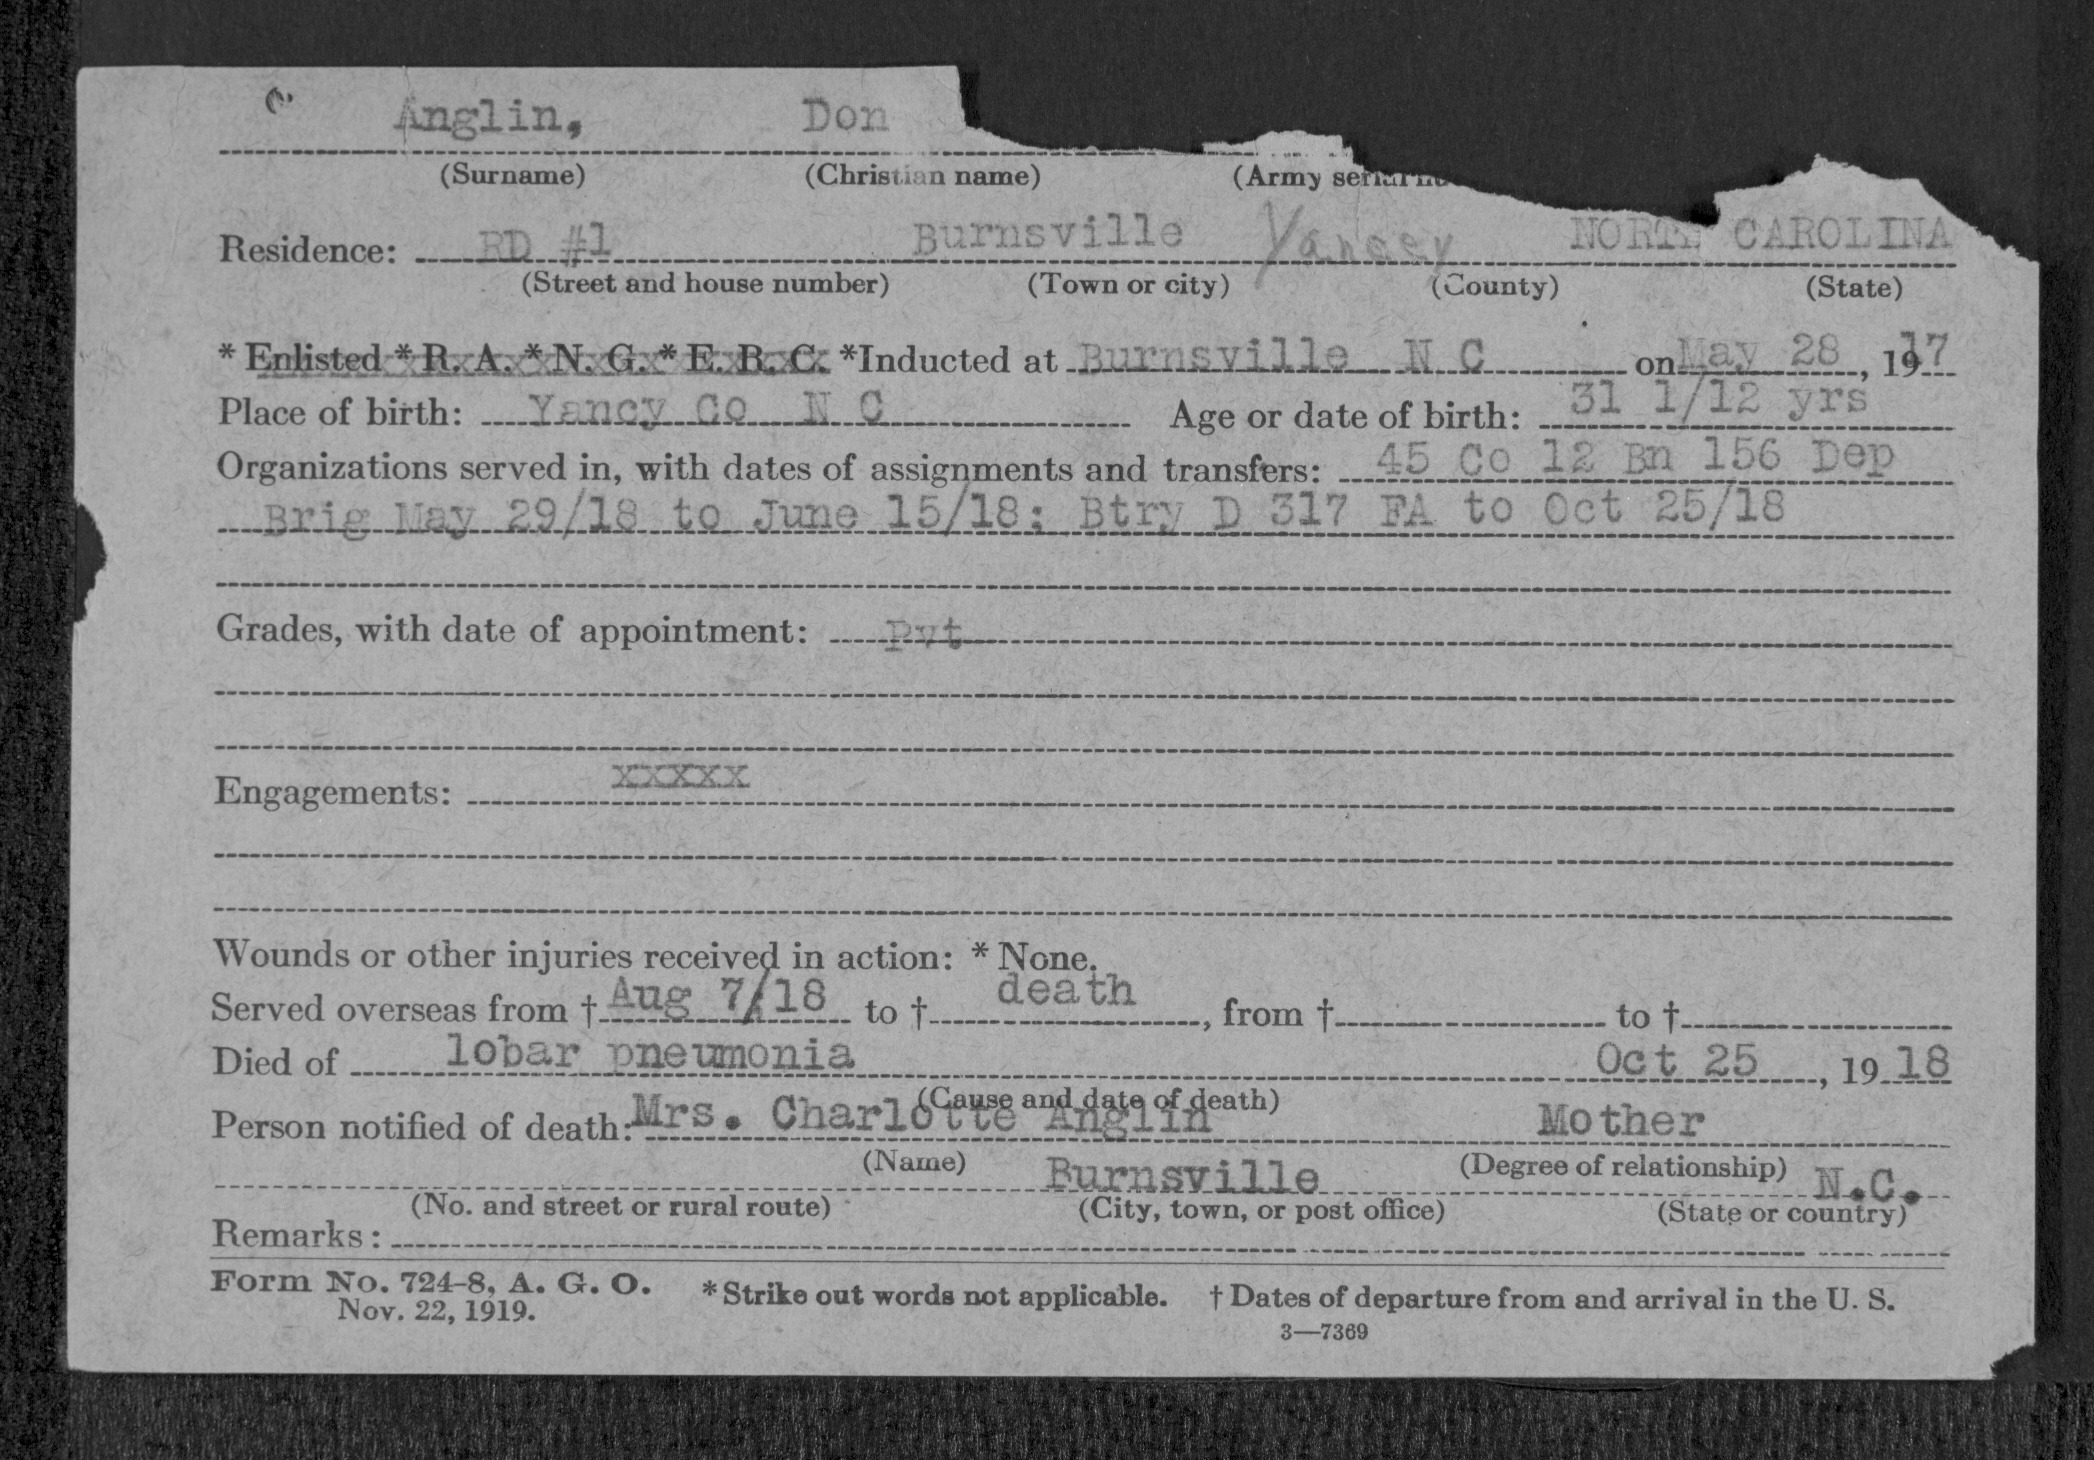 Anglin, Don
(Surname) (Christian name) (Army serial
Residence: RD #1 Burnsville Yancey NORTH CAROLINA
(Street and house number) (Town or city) (County) (State)
* Enlisted * R. A. * N. G. * E. R. C. *Inducted at Burnsville N C on May 28, 1917
Place of birth: Yancy Co N C Age or date of birth: 31 1/12 yrs
Organizations served in, with dates of assignments and transfers: 45 Co 12 Bn 156 Dep
Brig May 29/18 to June 15/18; Btry D 317 FA to Oct 25/18
Grades, with date of appointment: Pvt
Engagements: xxxxx
Wounds or other injuries received in action: * None.
Served overseas from † Aug 7/18 to † death, from † to †
Died of lobar pneumonia Oct 25, 19 18
(Cause and date of death)
Person notified of death: Mrs. Charlotte Anglin Mother
(Name) (Degree of relationship)
Burnsville N.C.
(No. and street or rural route) (City, town, or post office) (State or country)
Remarks:
Form No. 724-8, A. G. O. * Strike out words not applicable. † Dates of departure from and arrival in the U. S.
Nov. 22, 1919.
3—7369